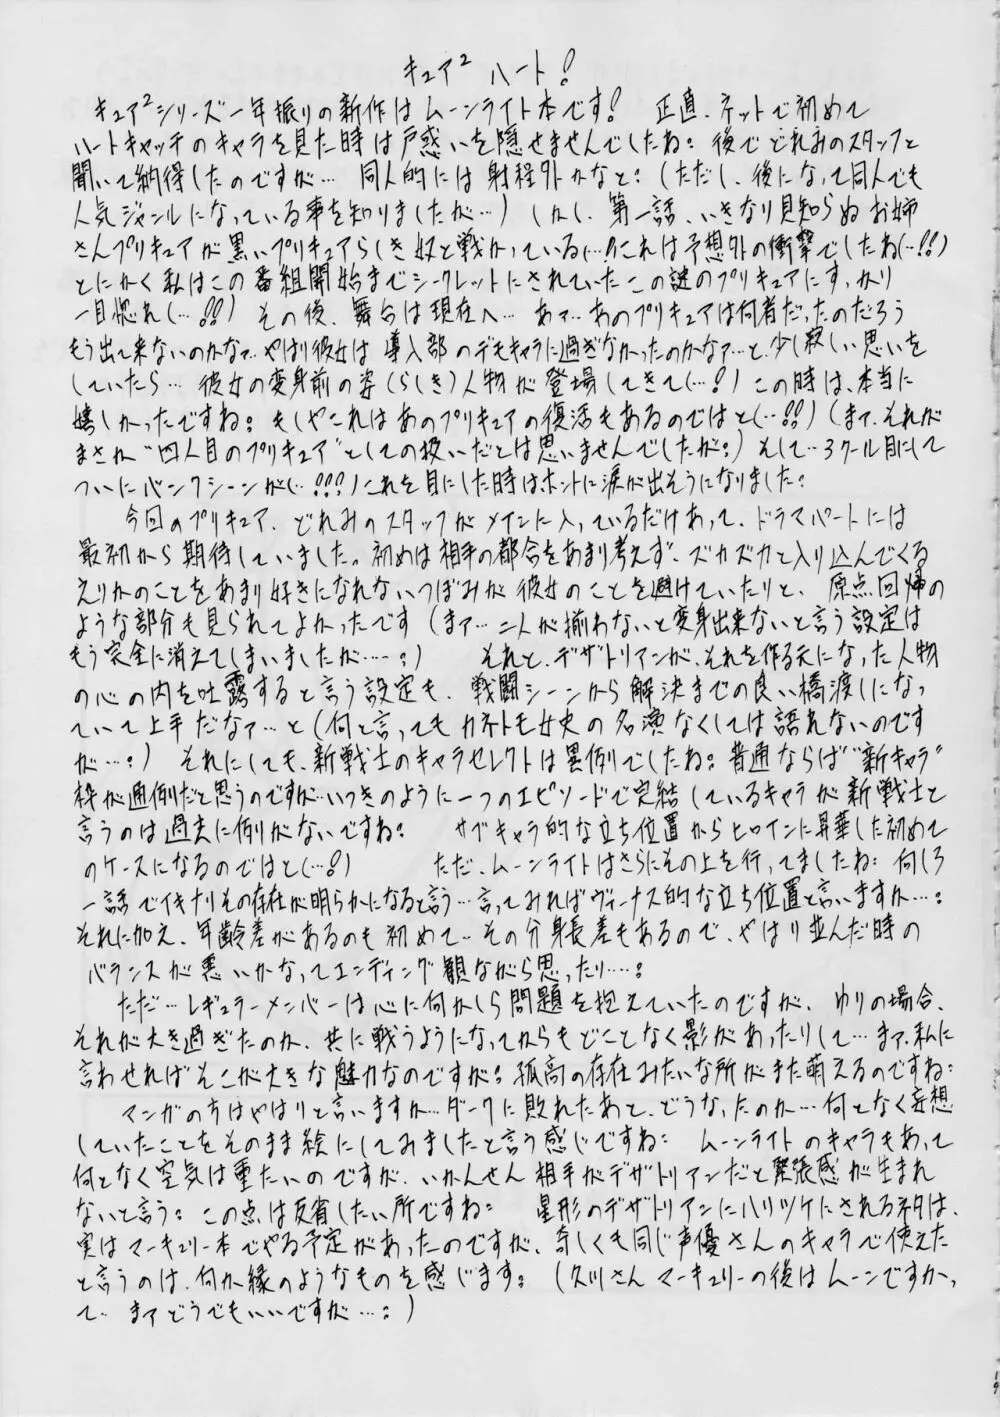 キュア² ハート!
キュア²シリーズ一年振りの新作はムーンライト本です! 正直、ネットで初めて
ハートキャッチのキャラを見た時は戸惑いを隠せませんでしたね。後でどれみのスタッフと
聞いて納得したのですが… 同人的には射程外かなと。(ただし、後になって同人でも
人気ジャンルになっている事を知りましたが…) しかし、第一話、いきなり見知らぬお姉
さんプリキュアが黒いプリキュアらしき奴と戦かっている(…!!これは予想外の衝撃でしたね(…!!)
とにかく私はこの番組開始までシークレットにされていたこの謎のプリキュアにすっかり
一目惚れ(…!!) その後、舞台は現在へ… あァ…あのプリキュアは何者だったのだろう
もう出て来ないのかなァ…やはり彼女は導入部のデモキャラに過ぎなかったのかなァ…と、少し寂しい思いを
していたら… 彼女の変身前の姿(らしき)人物が登場してきて(…!) この時は、本当に
嬉しかったですね。もしやこれはあのプリキュアの復活もあるのではと(…!!) (まァ、それが
まさか“四人目のプリキュア”としての扱いだとは思いませんでしたが。) そして…3クール目にして
ついにバンクシーンが(…!!!)これを目にした時はホントに涙が出そうになりました。
今回のプリキュア、どれみのスタッフがメインに入っているだけあって、ドラマパートには
最初から期待していました。初めは相手の都合をあまり考えず、ズカズカと入り込んでくる
えりかのことをあまり好きになれないつぼみが彼女のことを避けていたりと、原点回帰の
ような部分も見られてよかったです (まァ…二人が揃わないと変身出来ないと言う設定は
もう完全に消えてしまいましたが……。) それと、デザトリアンが、それを作る元になった人物
の心の内を吐露すると言う設定も、戦闘シーンから解決までの良い橋渡しになっ
ていて上手だなァ…と(何と言ってもカネトモ女史の名演なくしては語れないのです
が…。) それにしても、新戦士のキャラセレクトは異例でしたね。普通ならば“新キャラ”
枠が通例だと思うのですが…いつきのように一つのエピソードで完結しているキャラが新戦士と
言うのは過去に例がないですね。 サブキャラ的な立ち位置からヒロインに昇華した初めて
のケースになるのではと(…!) ただ、ムーンライトはさらにその上を行ってましたね。何しろ
一話でイキナリその存在が明らかになると言う…言ってみればヴィーナス的な立ち位置と言いますか…。
それに加え、年齢差があるのも初めて…その分身長差もあるので、やはり並んだ時の
バランスが悪いかなってエンディング観ながら思ったり…。
ただ…レギュラーメンバーは心に何かしら問題を抱えていたのですが、ゆりの場合、
それが大き過ぎたのか、共に戦うようになってからもどことなく影があったりして…まァ、私に
言わせればそこが大きな魅力なのですが。孤高の存在みたいな所がまた萌えるのですね。
マンガの方はやはりと言いますか…ダークに敗れたあと、どうなったのか…何となく妄想
していたことをそのまま絵にしてみましたと言う感じですね。 ムーンライトのキャラもあって
何となく空気は重たいのですが、いかんせん相手がデザトリアンだと緊張感が生まれ
ないと言う。この点は反省したい所ですね。 星形のデザトリアンにハリツケにされるネタは、
実はマーキュリー本でやる予定があったのですが、奇しくも同じ声優さんのキャラで使えた
と言うのは、何か縁のようなものを感じます。 (久川さんマーキュリーの後はムーンですかっ
て… まァどうでもいいですが…。)